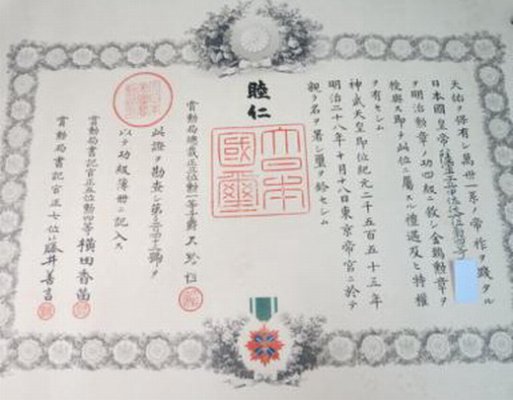 天佑ヲ保有シ萬世一系ノ帝祚ヲ踐タル
日本國皇帝ハ陸軍
ヲ明治勲章ノ功四級ニ叙シ金鵄勲章ヲ
授與ス即チ此位ニ屬スル禮遇及ヒ特權
ヲ有セシム
神武天皇即位紀元二千五百五十三年
明治二十八年十月十八日東京帝宮ニ於テ
親ラ名ヲ署シ璽ヲ鈐セシム
睦仁
大日本國璽
賞勲局總裁正三位勲一等子爵大給恒
此證ヲ勘査シ第 號ヲ
以テ功級簿冊ニ記入ス
賞勲局書記官正五位勲四等横田香苗
賞勲局書記官正七位 藤井善言